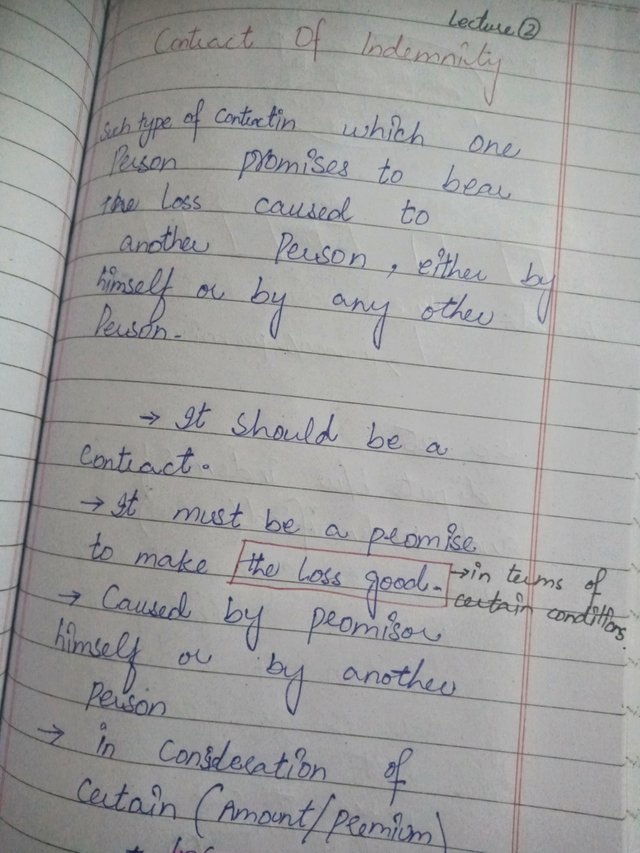 Lecture ②
Contract Of Indemnity
Such type of Contract in which one
Person promises to bear
the Loss caused to
another Person, either by
himself or by any other
Person.
→ It should be a
Contract.
→ It must be a promise
to make the Loss good. → in terms of
certain conditions.
→ Caused by promisor
himself or by another
Person
→ in Consideration of
Certain (Amount/Premium)